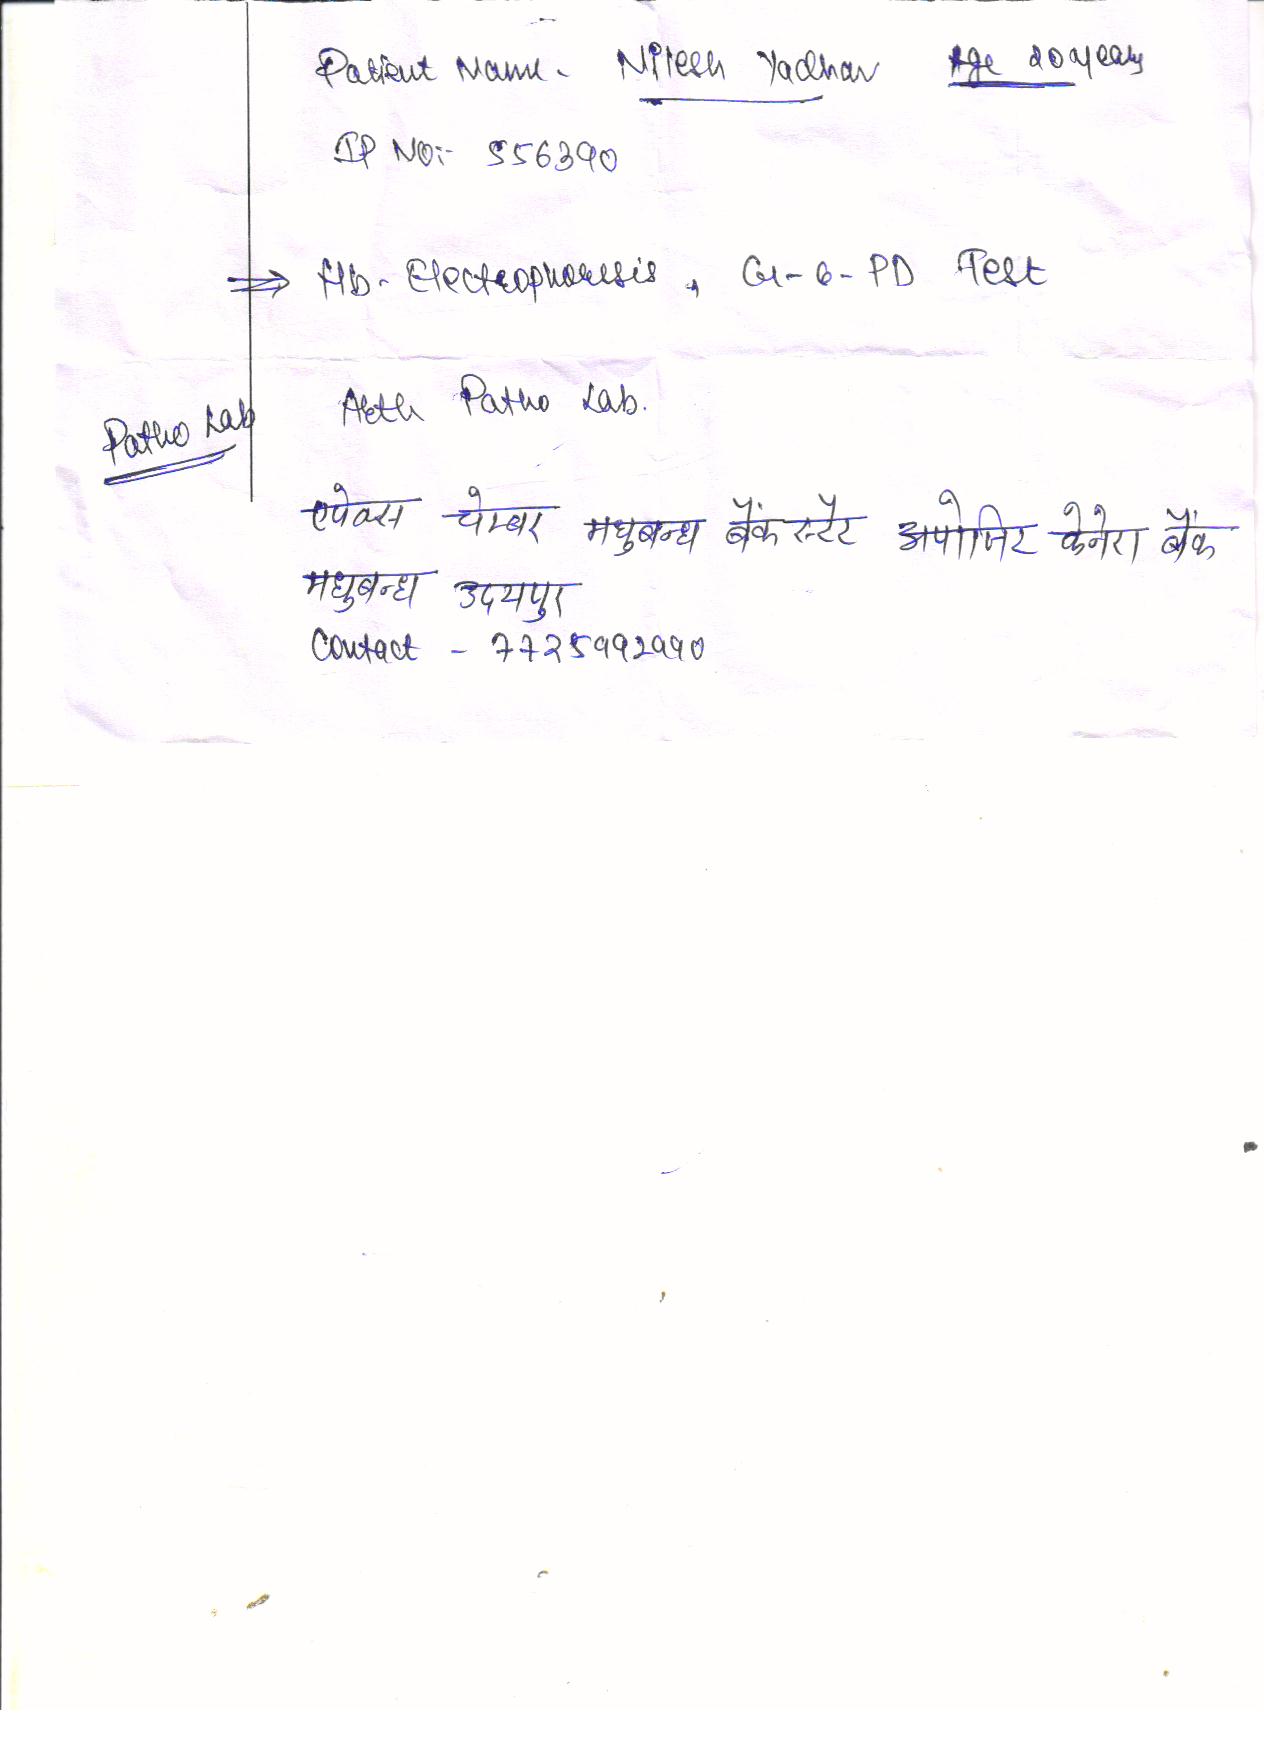 Patient Name - Nitesh Yadhav Age 20 years
IP NO:- 556390
⇒ Hb- Electrophoresis, G-6-PD Test
Patho Lab
Patho Lab.
एपेक्स चेम्बर मधुबन्ध बैंक स्टैट अपोजिट केनेरा बैंक
मधुबन्ध उदयपुर
Contact - 7725992990